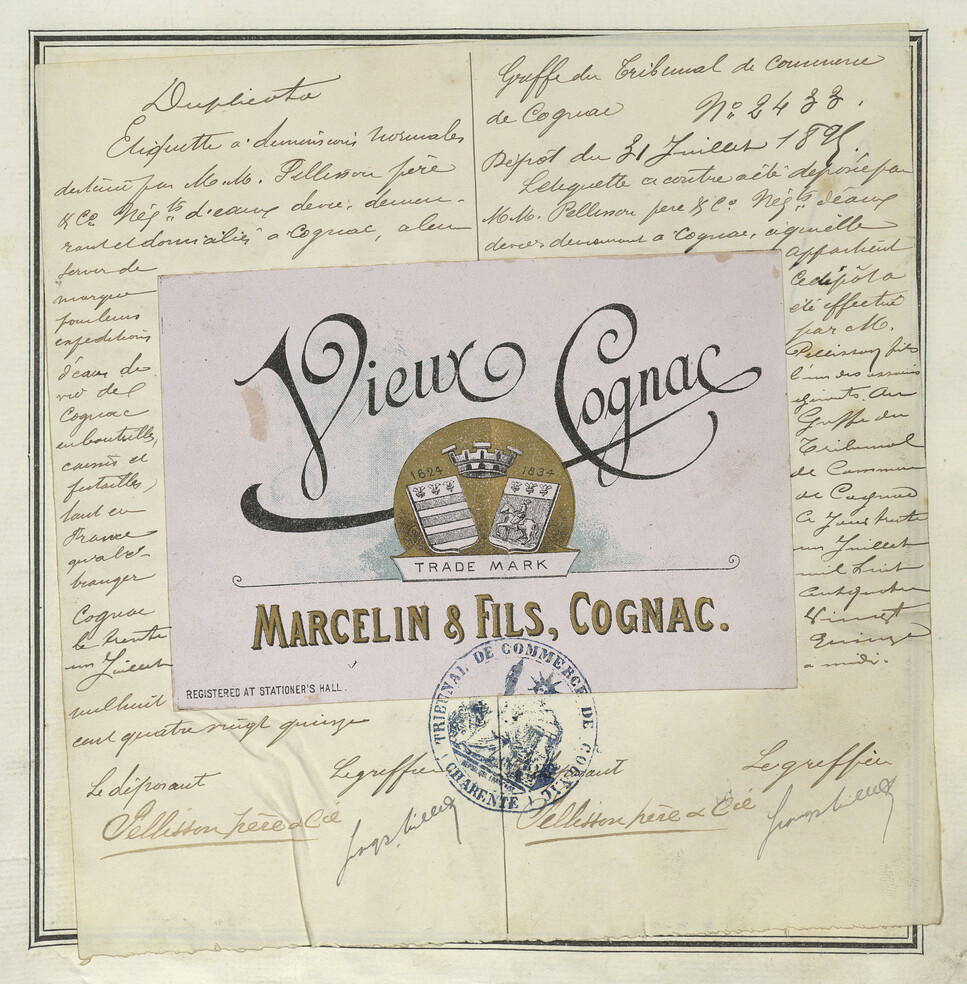 Duplicata
Etiquette à dimensions normales
destinée par M.M. Pellisson père
& Co Négts d'eaux de vie, demeu-
rant et domiciliés à Cognac, à leur
servir de
marque
pour leurs
expéditions
d'eaux de
vie de
Cognac
en bouteilles,
caisses et
futailles,
tant en
France
qu'à l'é-
tranger
Cognac
le trente
un Juillet
mil huit
cent quatre vingt quinze
Le déposant Le greffier
Pellisson père & Cie
Greffe du Tribunal de Commerce
de Cognac No 2433.
Dépôt du 31 Juillet 1895.
L'etiquette ci contre a été déposée par
MM. Pellisson père & Co Négts d'eaux
de vie demeurant à Cognac, à quielle
appartient
Ce dépôt a
été effectué
par M.
Pellisson fils
l'un des associés
gérants. Au
Greffe du
Tribunal
de Commerce
de Cognac
Ce jour trente
un Juillet
mil huit
cent quatre
vingt
quinze
à midi.
Le greffier
Pellisson père & Cie
Vieux Cognac
1624 1834
TRADE MARK
MARCELIN & FILS, COGNAC.
REGISTERED AT STATIONER'S HALL.
TRIBUNAL DE COMMERCE DE COGNAC
CHARENTE